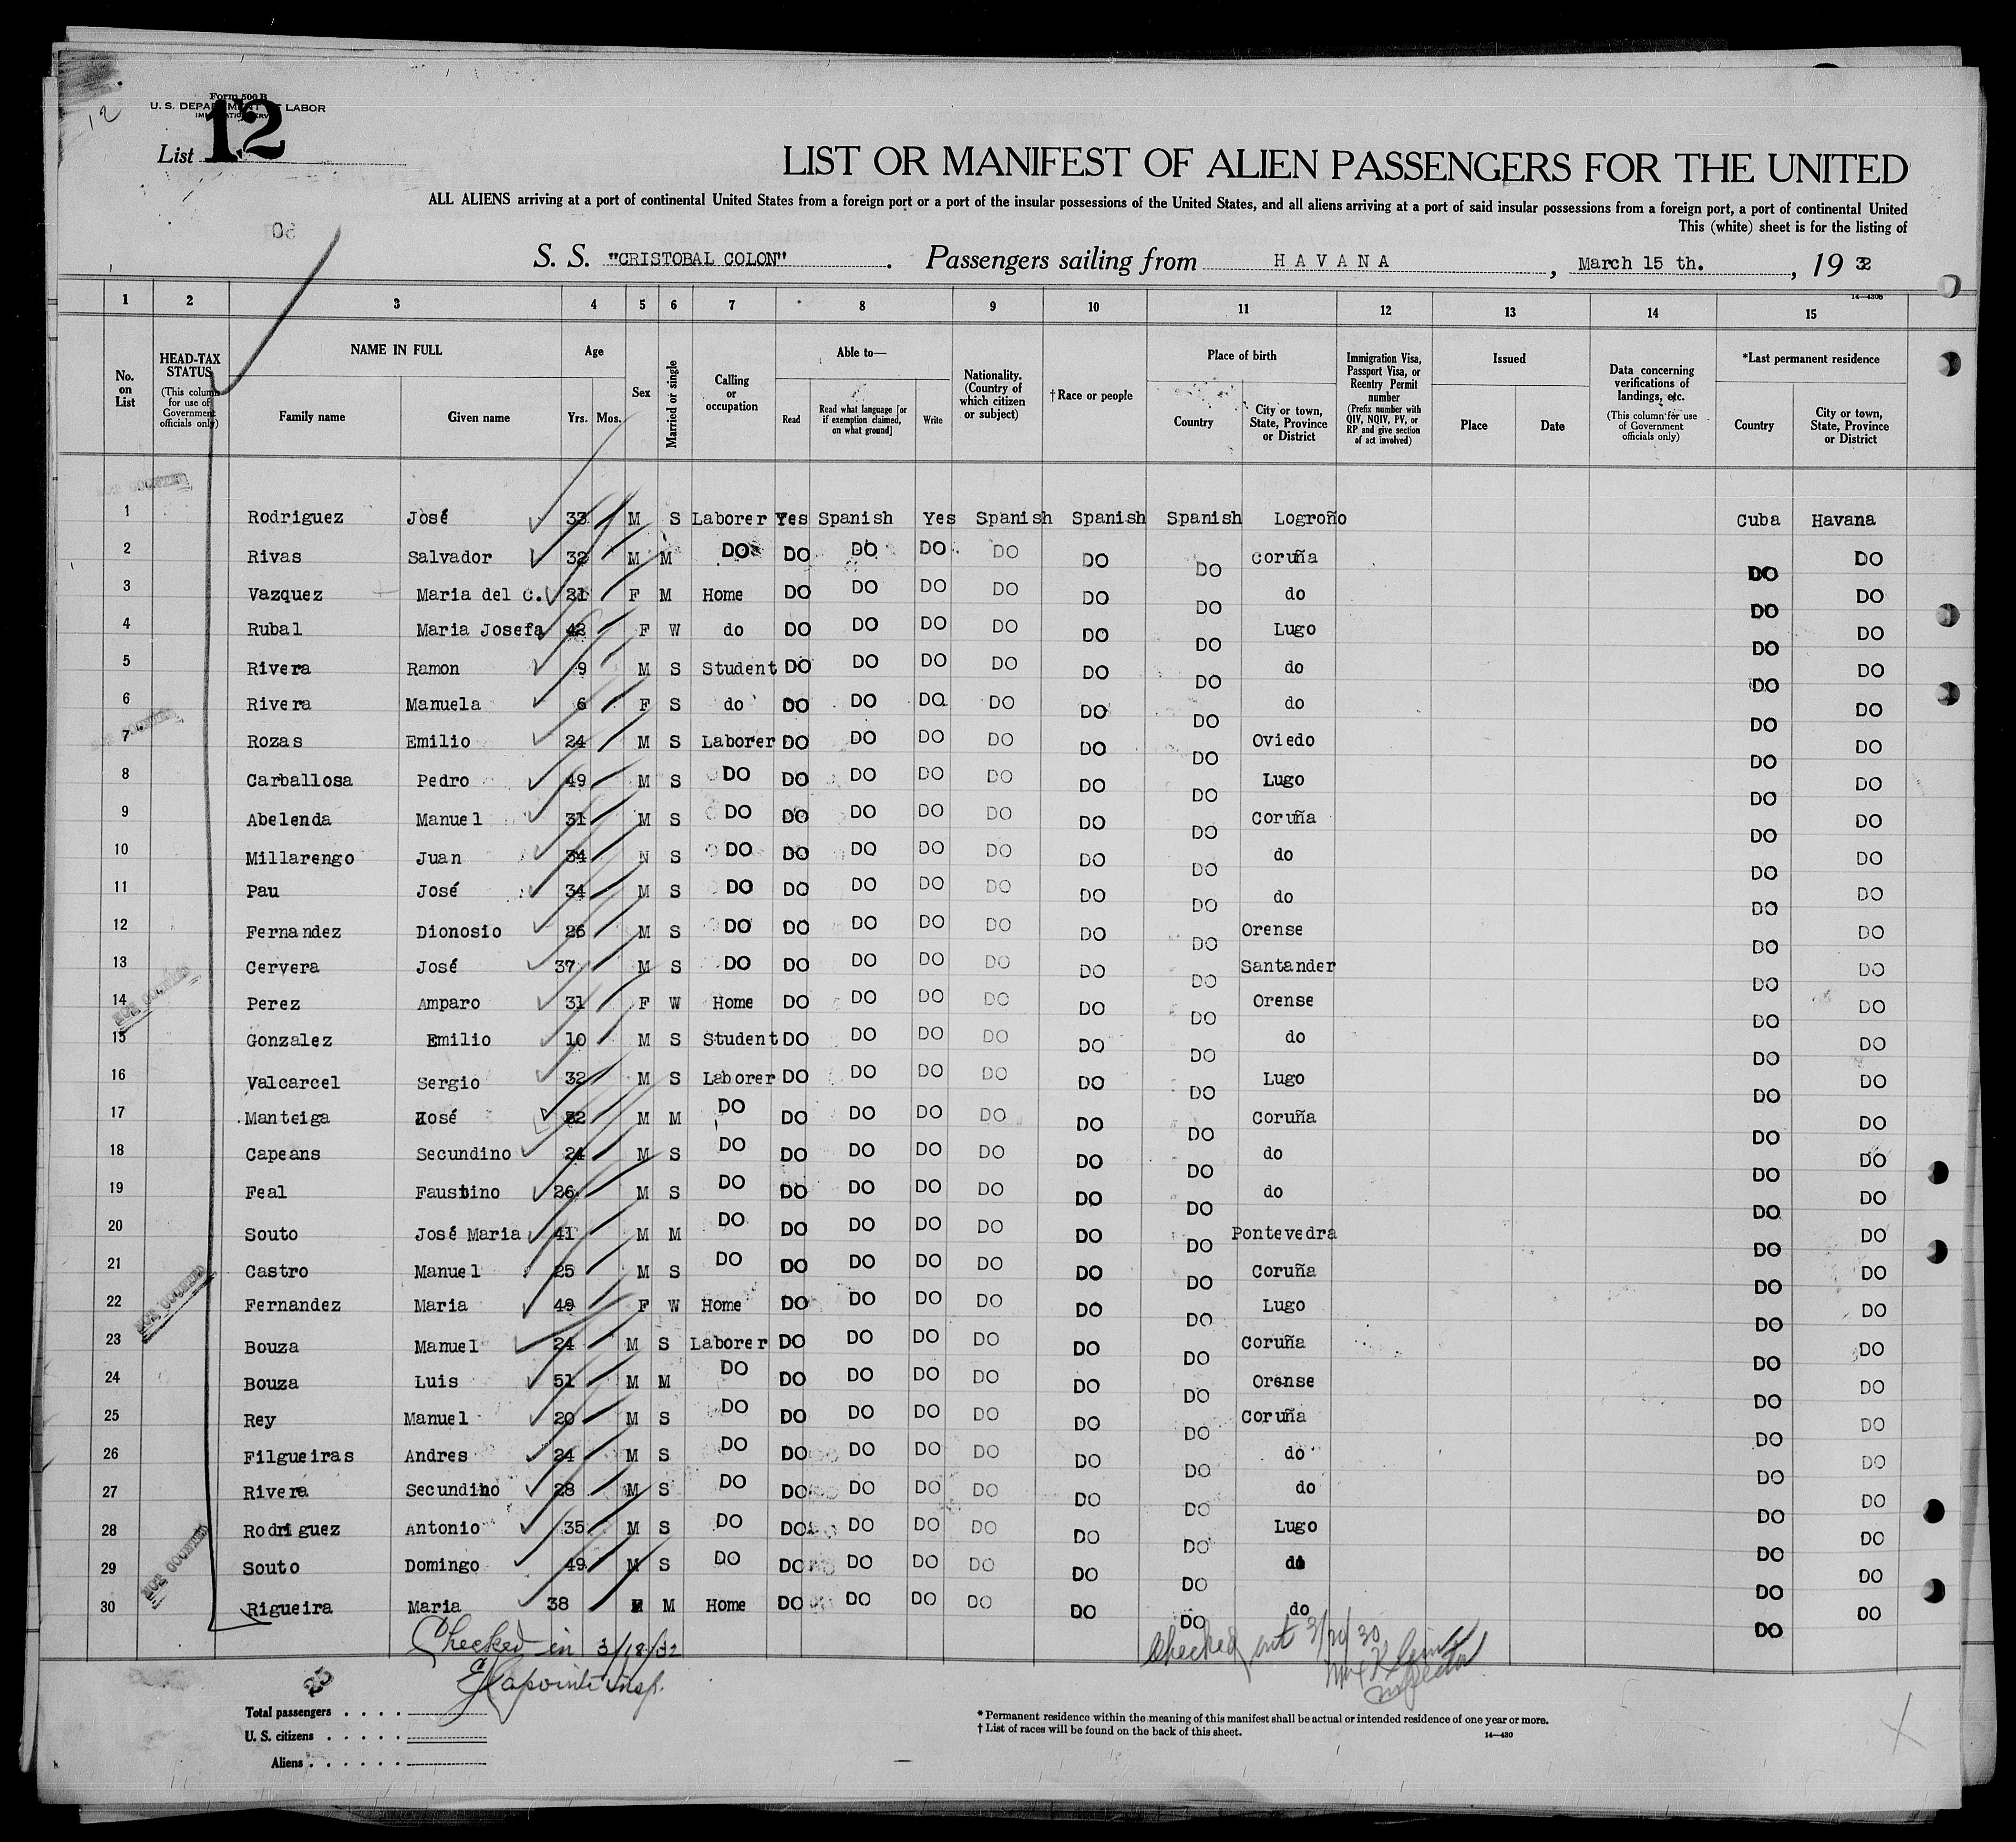 12
Form 500 B
U. S. DEPARTMENT OF LABOR
List 12
LIST OR MANIFEST OF ALIEN PASSENGERS FOR THE UNITED
ALL ALIENS arriving at a port of continental United States from a foreign port or a port of the insular possessions of the United States, and all aliens arriving at a port of said insular possessions from a foreign port, a port of continental United
This (white) sheet is for the listing of
S. S. "CRISTOBAL COLON". Passengers sailing from HAVANA, March 15 th., 1932
14—430B
1 2 3 4 5 6 7 8 9 10 11 12 13 14 15
No. on List
HEAD-TAX STATUS (This column for use of Government officials only)
NAME IN FULL
Family name Given name
Age
Yrs. Mos.
Sex
Married or single
Calling or occupation
Able to—
Read Read what language [or if exemption claimed, on what ground] Write
Nationality. (Country of which citizen or subject)
†Race or people
Place of birth
Country City or town, State, Province or District
Immigration Visa, Passport Visa, or Reentry Permit number (Prefix number with QIV, NQIV, PV, or RP and give section of act involved)
Issued
Place Date
Data concerning verifications of landings, etc. (This column for use of Government officials only)
*Last permanent residence
Country City or town, State, Province or District
1 Rodriguez José 33 M S Laborer Yes Spanish Yes Spanish Spanish Spanish Logroño Cuba Havana
2 Rivas Salvador 32 M M DO DO DO DO DO DO DO Coruña DO DO
3 Vazquez Maria del C. 31 F M Home DO DO DO DO DO DO do DO DO
4 Rubal Maria Josefa 42 F W do DO DO DO DO DO DO Lugo DO DO
5 Rivera Ramon 9 M S Student DO DO DO DO DO DO do DO DO
6 Rivera Manuela 6 F S do DO DO DO DO DO DO do DO DO
7 Rozas Emilio 24 M S Laborer DO DO DO DO DO DO Oviedo DO DO
8 Carballosa Pedro 49 M S DO DO DO DO DO DO DO Lugo DO DO
9 Abelenda Manuel 31 M S DO DO DO DO DO DO DO Coruña DO DO
10 Millarengo Juan 34 N S DO DO DO DO DO DO DO do DO DO
11 Pau José 34 M S DO DO DO DO DO DO DO do DO DO
12 Fernandez Dionosio 26 M S DO DO DO DO DO DO DO Orense DO DO
13 Cervera José 37 M S DO DO DO DO DO DO DO Santander DO DO
14 Perez Amparo 31 F W Home DO DO DO DO DO DO Orense DO DO
15 Gonzalez Emilio 10 M S Student DO DO DO DO DO DO do DO DO
16 Valcarcel Sergio 32 M S Laborer DO DO DO DO DO DO Lugo DO DO
17 Manteiga José 32 M M DO DO DO DO DO DO DO Coruña DO DO
18 Capeans Secundino 24 M S DO DO DO DO DO DO DO do DO DO
19 Feal Faustino 26 M S DO DO DO DO DO DO DO do DO DO
20 Souto José Maria 41 M M DO DO DO DO DO DO DO Pontevedra DO DO
21 Castro Manuel 25 M S DO DO DO DO DO DO DO Coruña DO DO
22 Fernandez Maria 49 F W Home DO DO DO DO DO DO Lugo DO DO
23 Bouza Manuel 24 M S Laborer DO DO DO DO DO DO Coruña DO DO
24 Bouza Luis 51 M M DO DO DO DO DO DO DO Orense DO DO
25 Rey Manuel 20 M S DO DO DO DO DO DO DO Coruña DO DO
26 Filgueiras Andres 24 M S DO DO DO DO DO DO DO do DO DO
27 Rivera Secundino 28 M S DO DO DO DO DO DO DO do DO DO
28 Rodriguez Antonio 35 M S DO DO DO DO DO DO DO Lugo DO DO
29 Souto Domingo 49 M S DO DO DO DO DO DO DO do DO DO
30 Rigueira Maria 38 M Home DO DO DO DO DO DO do DO DO
NOT COUNTED
NOT COUNTED
NOT COUNTED
NOT COUNTED
NOT COUNTED
Checked in 3/18/32
Lapointe insp.
Checked out
Inspector
25
Total passengers
U. S. citizens
Aliens
* Permanent residence within the meaning of this manifest shall be actual or intended residence of one year or more.
† List of races will be found on the back of this sheet.
14—430